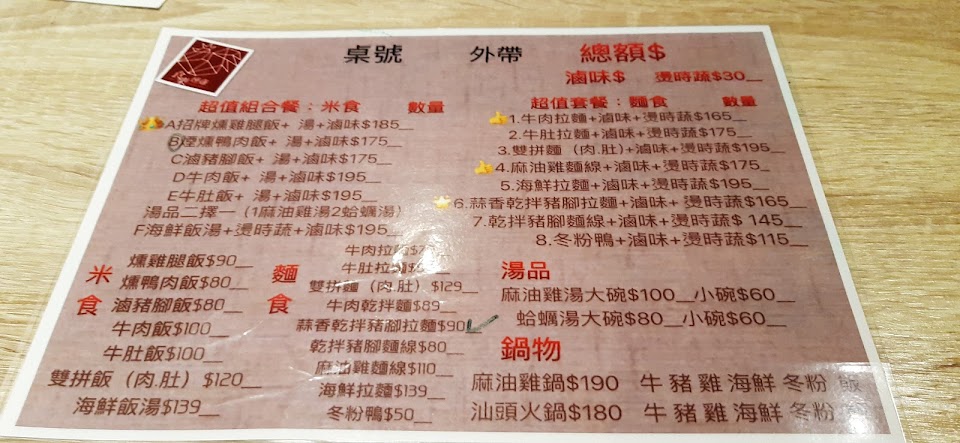 桌號 外帶 總額$
滷味$ 燙時蔬$30__
超值組合餐：米食 數量
A招牌燻雞腿飯+ 湯+滷味$185__
B煙燻鴨肉飯+ 湯+滷味$175__
C滷豬腳飯+ 湯+滷味$175__
D牛肉飯+ 湯+滷味$195__
E牛肚飯+ 湯+滷味$195__
湯品二擇一（1麻油雞湯2蛤蠣湯）
F海鮮飯湯+燙時蔬+滷味$195__
超值套餐：麵食 數量
1.牛肉拉麵+滷味+燙時蔬$165__
2.牛肚拉麵+滷味+燙時蔬$175__
3.雙拼麵(肉.肚)+滷味+燙時蔬$195__
4.麻油雞麵線+滷味+燙時蔬$175__
5.海鮮拉麵+滷味+燙時蔬$195__
6.蒜香乾拌豬腳拉麵+滷味+燙時蔬$165__
7.乾拌豬腳麵線+滷味+燙時蔬$ 145__
8.冬粉鴨+滷味+燙時蔬$115__
米食
燻雞腿飯$90__
燻鴨肉飯$80__
滷豬腳飯$80__
牛肉飯$100__
牛肚飯$100__
雙拼飯（肉.肚）$120__
海鮮飯湯$139__
麵食
牛肉拉麵
牛肚拉麵
雙拼麵（肉.肚）$129__
牛肉乾拌麵$89__
蒜香乾拌豬腳拉麵$90__
乾拌豬腳麵線$80__
麻油雞麵線$110__
海鮮拉麵$139__
冬粉鴨$50__
湯品
麻油雞湯大碗$100__小碗$60__
蛤蠣湯大碗$80__小碗$60__
鍋物
麻油雞鍋$190 牛 豬 雞 海鮮 冬粉 飯
汕頭火鍋$180 牛 豬 雞 海鮮 冬粉